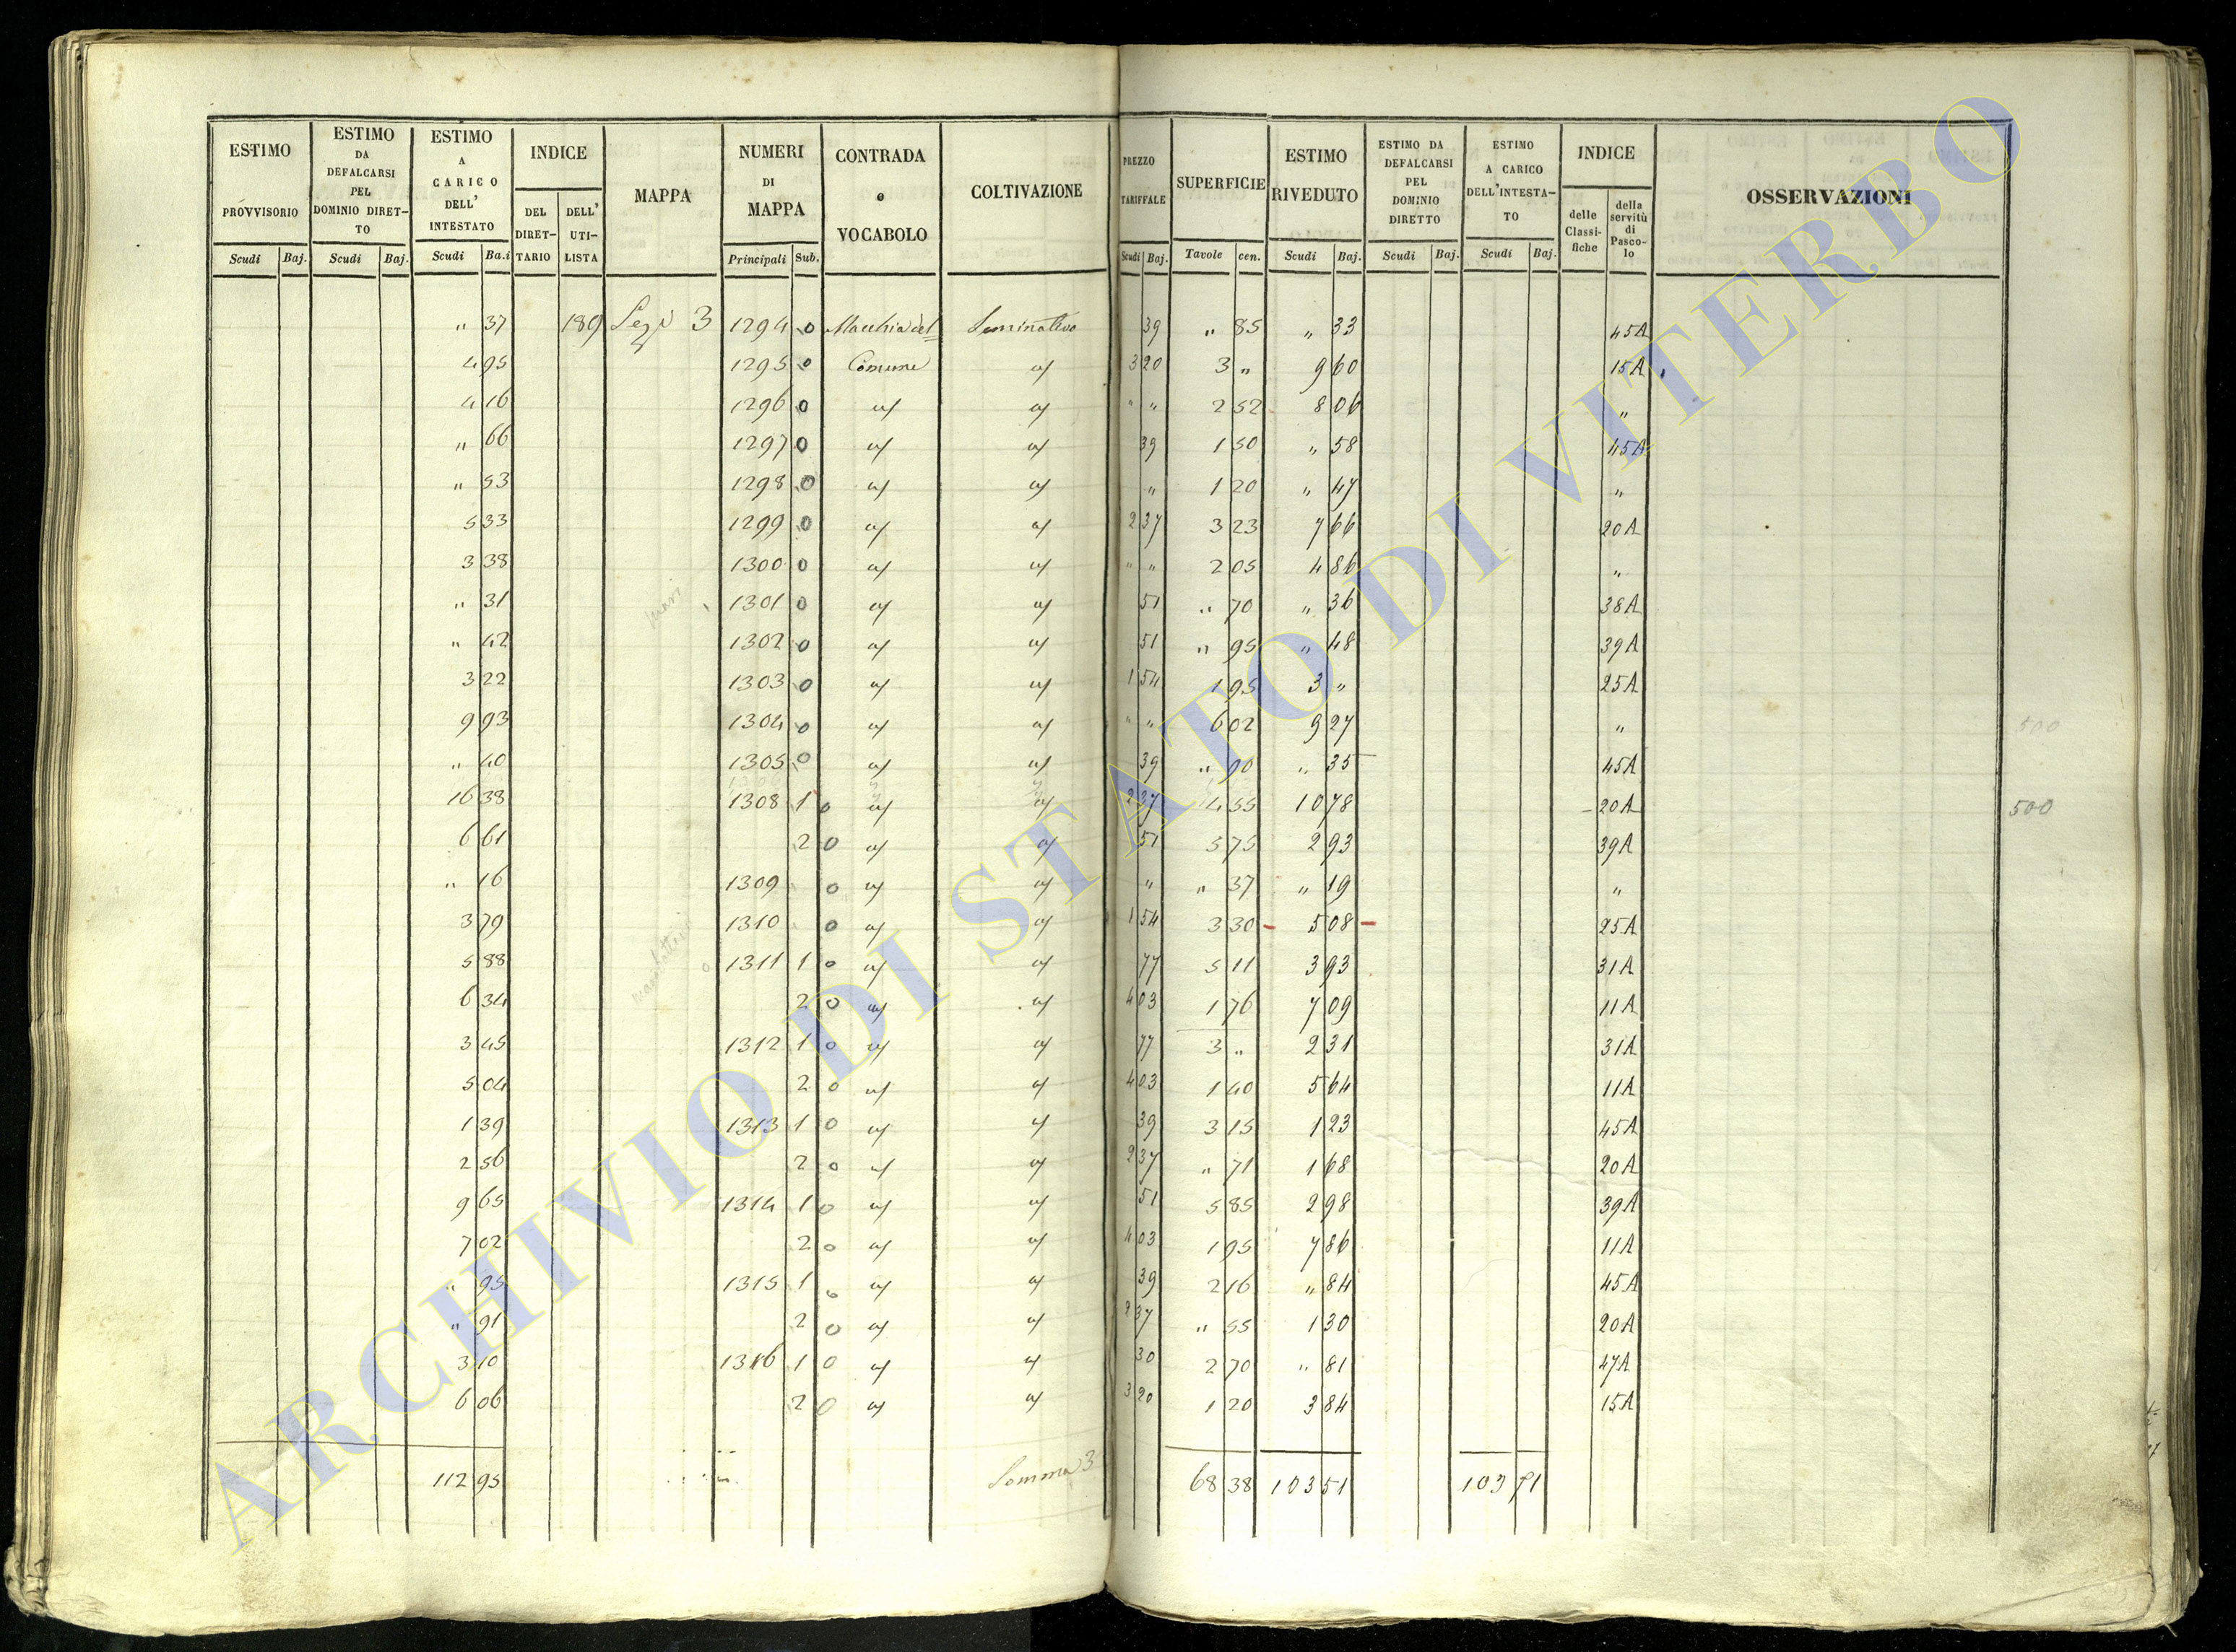 ESTIMO PROVVISORIO Scudi Baj. | ESTIMO DA DEFALCARSI PEL DOMINIO DIRETTO Scudi Baj. | ESTIMO A CARICO DELL' INTESTATO Scudi Ba.i | INDICE DEL DIRETTARIO DELL' UTILISTA | MAPPA | NUMERI DI MAPPA Principali Sub. | CONTRADA o VOCABOLO | COLTIVAZIONE | PREZZO TARIFFALE Scudi Baj. | SUPERFICIE Tavole cen. | ESTIMO RIVEDUTO Scudi Baj. | ESTIMO DA DEFALCARSI PEL DOMINIO DIRETTO Scudi Baj. | ESTIMO A CARICO DELL'INTESTATO Scudi Baj. | INDICE delle Classifiche della servitù di Pascolo | OSSERVAZIONI
" 37 189 3 1294 0 Macchia del Seminativo 39 " 85 " 33 45A
4 95 1295 0 Comune 3 20 3 " 9 60 15A
4 16 1296 0 " " 2 52 8 06 "
" 66 1297 0 39 1 50 " 58 45A
" 53 1298 0 " 1 20 " 47 "
5 33 1299 0 2 37 3 23 7 66 20A
3 38 1300 0 " " 2 05 4 86 "
" 31 1301 0 51 " 70 " 36 38A
" 42 1302 0 51 " 95 " 48 39A
3 22 1303 0 1 54 1 95 3 " 25A
9 93 1304 0 " " 6 02 9 27 " 500
" 40 1305 0 39 " 90 " 35 45A
16 38 1308 1 0 2 27 4 55 10 78 20A 500
6 61 2 0 51 5 75 2 93 39A
" 16 1309 0 " " 37 " 19 "
3 79 1310 0 1 54 3 30 5 08 25A
5 88 1311 1 0 77 5 11 3 93 31A
6 34 2 0 4 03 1 76 7 09 11A
3 45 1312 1 0 77 3 " 2 31 31A
5 04 2 0 4 03 1 40 5 64 11A
1 39 1313 1 0 39 3 15 1 23 45A
2 56 2 0 2 37 " 71 1 68 20A
9 65 1314 1 0 51 5 85 2 98 39A
7 02 2 0 4 03 1 95 7 86 11A
" 95 1315 1 0 39 2 16 " 84 45A
" 91 2 0 2 37 " 55 1 30 20A
3 10 1316 1 0 30 2 70 " 81 47A
6 06 2 0 3 20 1 20 3 84 15A
112 95 Somma 3 68 38 103 51 103 51
ARCHIVIO DI STATO DI VITERBO